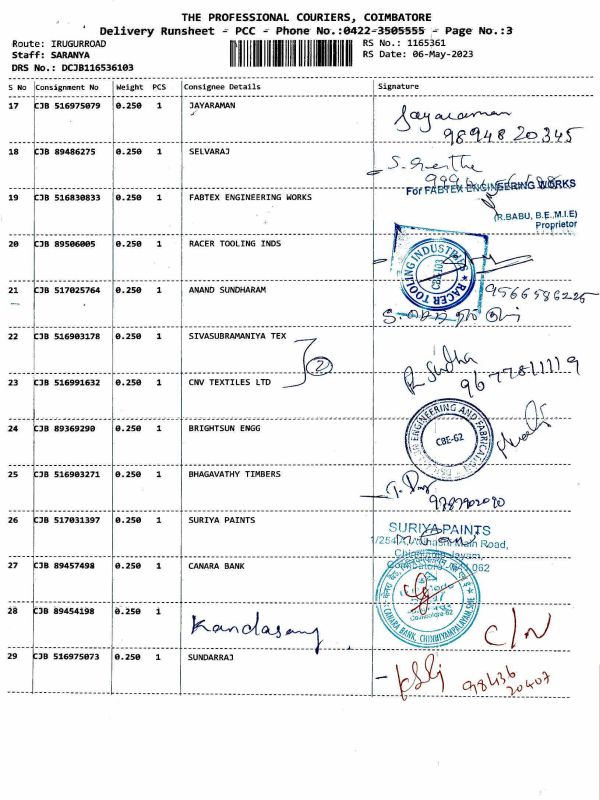 THE PROFESSIONAL COURIERS, COIMBATORE
Delivery Runsheet - PCC - Phone No.:0422-3505555 - Page No.:3
Route: IRUGURROAD
RS No.: 1165361
Staff: SARANYA
RS Date: 06-May-2023
DRS No.: DCJB116536103
S No Consignment No Weight PCS Consignee Details Signature
17 CJB 516975079 0.250 1 JAYARAMAN Jayaraman
98948 20345
18 CJB 89486275 0.250 1 SELVARAJ
19 CJB 516830833 0.250 1 FABTEX ENGINEERING WORKS For FABTEX ENGINEERING WORKS
(R.BABU, B.E.,M.I.E)
Proprietor
20 CJB 89506005 0.250 1 RACER TOOLING INDS
RACER TOOLING INDUSTRIES
21 CJB 517025764 0.250 1 ANAND SUNDHARAM 9566586225
22 CJB 516903178 0.250 1 SIVASUBRAMANIYA TEX
2
23 CJB 516991632 0.250 1 CNV TEXTILES LTD R. Sudha
9677811119
24 CJB 89369290 0.250 1 BRIGHTSUN ENGG
ENGINEERING AND FABRICATION
CBE-62
25 CJB 516903271 0.250 1 BHAGAVATHY TIMBERS
26 CJB 517031397 0.250 1 SURIYA PAINTS SURIYA PAINTS
Main Road,
27 CJB 89457498 0.250 1 CANARA BANK
CANARA BANK, CHINNIYAMPALAYAM
28 CJB 89454198 0.250 1 Kandasamy C/N
29 CJB 516975073 0.250 1 SUNDARRAJ
98436
20407